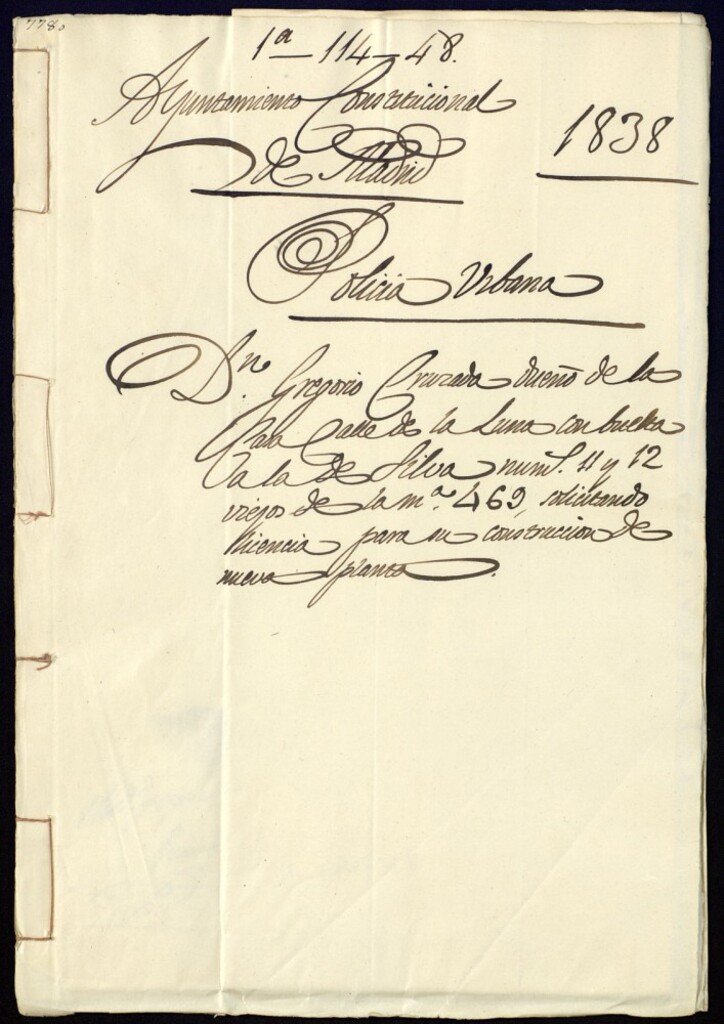 778.
1ª-114-48.
Ayuntamiento Constitucional
de Madrid
1838
Policia Urbana
Dn. Gregorio Cruzada dueño de la
Casa Calle de la Luna con buelta
a la de Silva nums. 11 y 12
viejos de la mª. 469, solicitando
licencia para su construccion de
nueva planta.